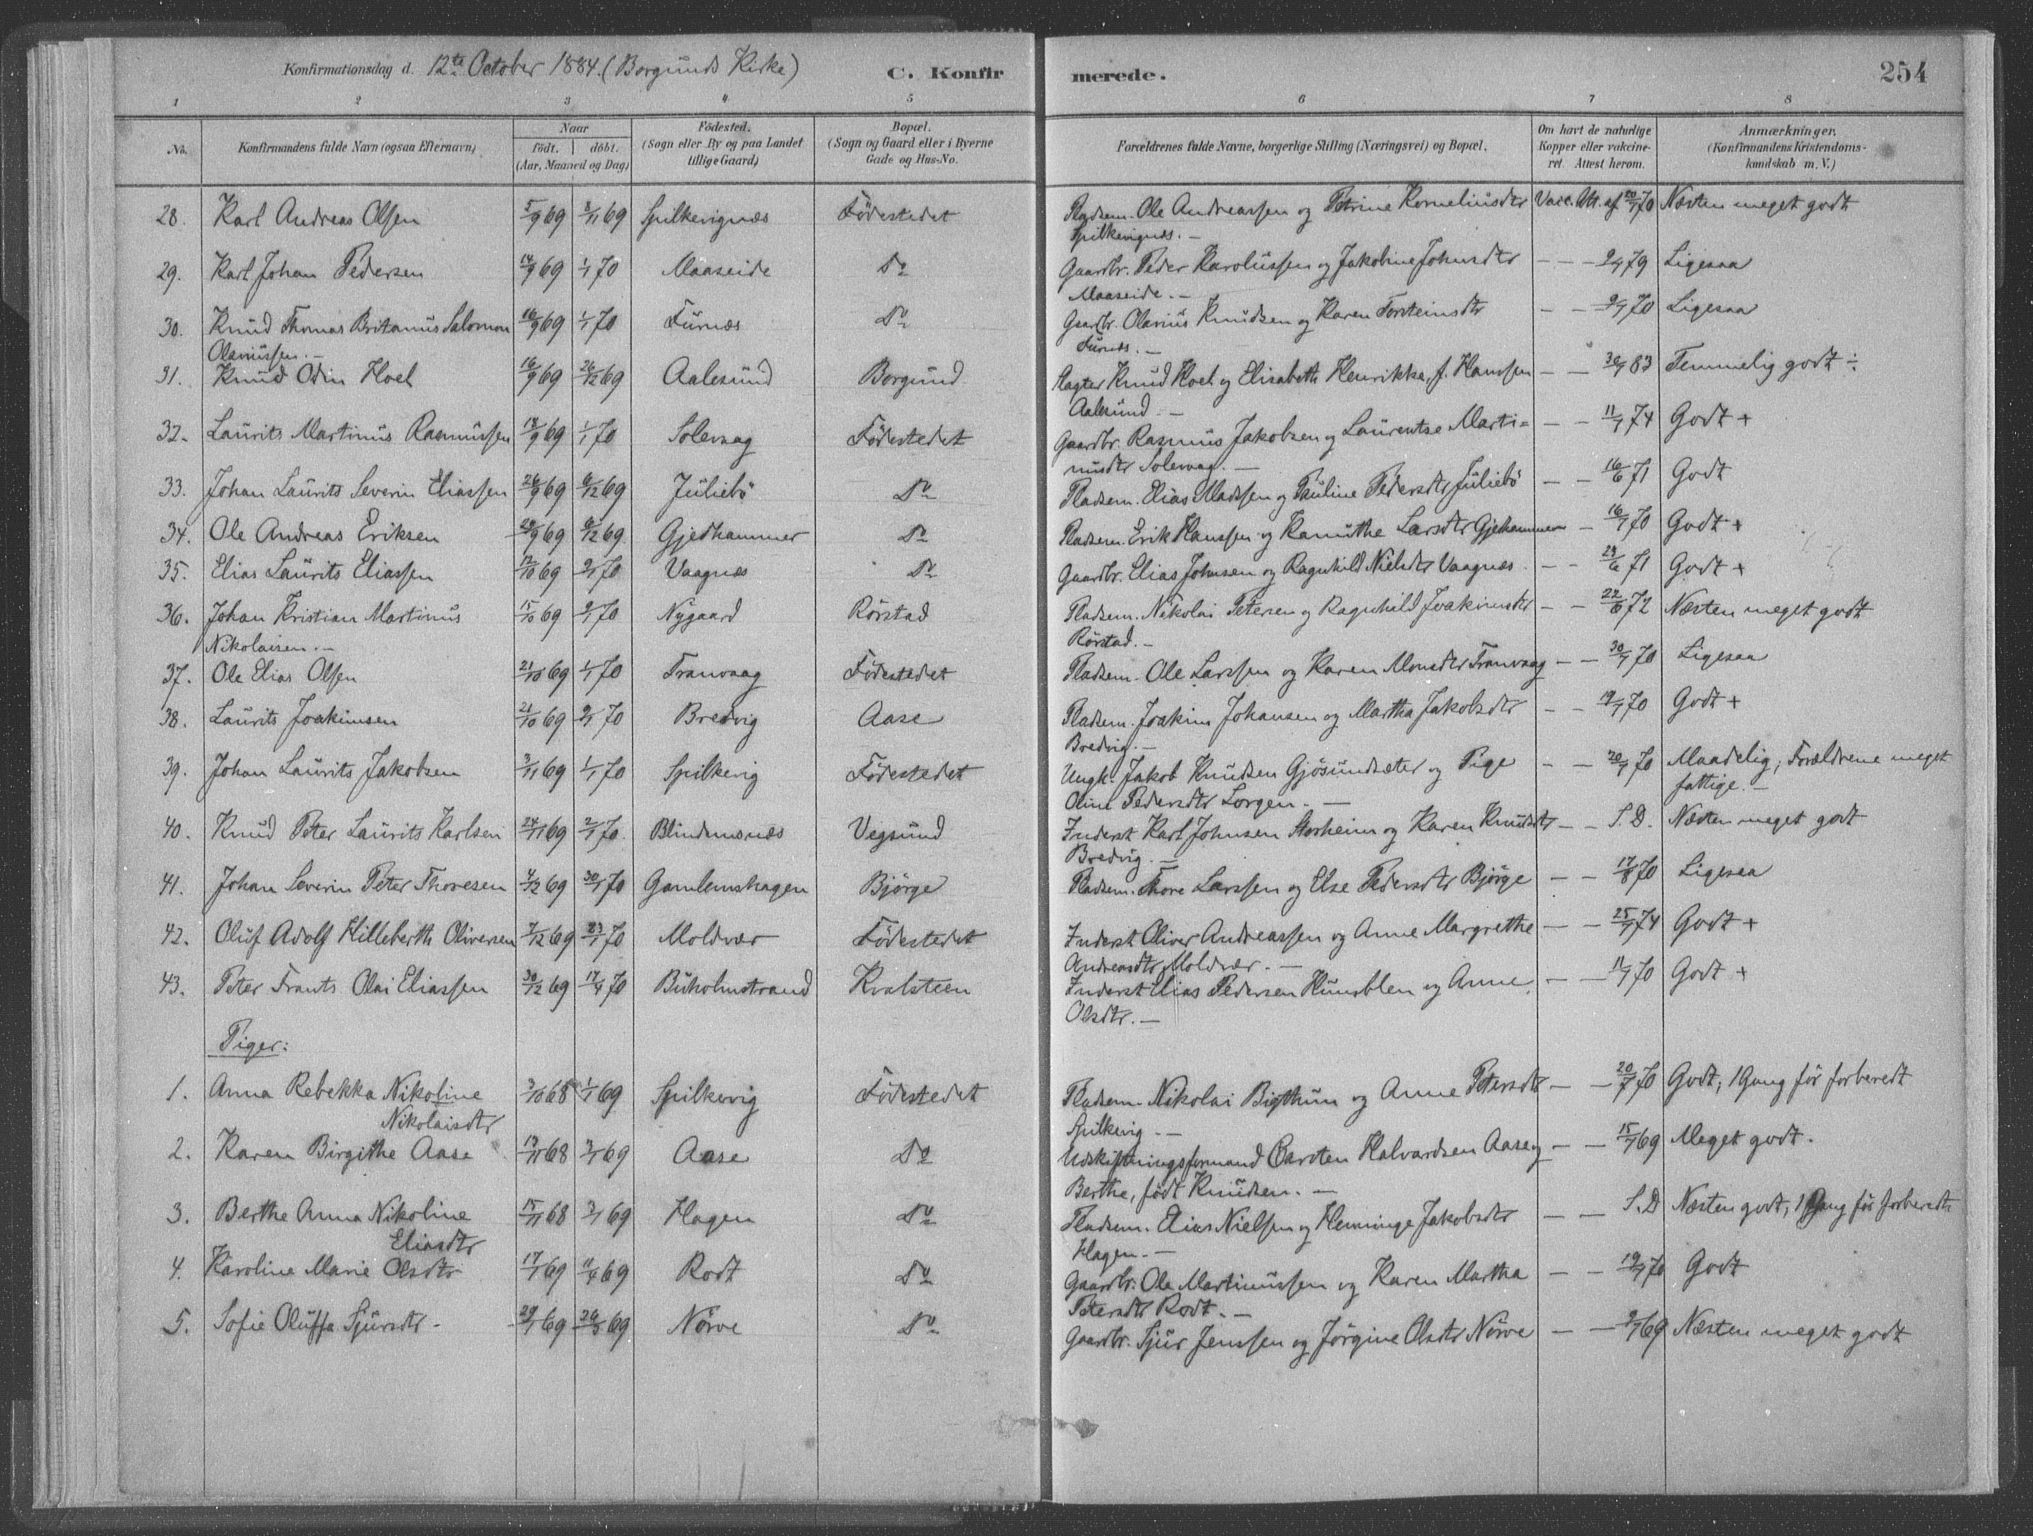 Konfirmationsdag d. 12te October 1884. (Borgunds Kirke) C. Konfirmerede. 254
1 2 3 4 5 6 7 8
No. Konfirmandens fulde Navn (ogsaa Efternavn) Naar født. døbt. (Aar, Maaned og Dag) Födested. (Sogn eller By og paa Landet tillige Gaard) Bopæl. (Sogn og Gaard eller i Byerne Gade og Hus-No. Forældrenes fulde Navne, borgerlige Stilling (Næringsvei) og Bopæl. Om havt de naturlige Kopper eller vaccineret. Attest herom. Anmærkninger. (Konfirmandens Kristendomskundskab m. V.)
28. Karl Andreas Olsen 5/9 69 8/11 69 Spilkevignæs Födestedet Pladsm. Ole Andreassen og Petrine Korneliusdtr Vacc. Att. af 20/7 70 Næsten meget godt
Spilkevignæs. —
29. Karl Johan Pedersen 14/9 69 1/1 70 Maaseide Do Gaardbr. Peder Karolussen og Jakobine Johnsdtr — — 2/7 79 Ligesaa
Maaseide. —
30. Knud Thomas Britanus Salomon 16/9 69 1/1 70 Furnæs Do Gaardbr. Olarius Knudsen og Karen Torsteinsdtr — — 9/7 70 Ligesaa
Olariussen. — Furnæs. —
31. Knud Odin Hoel 16/9 69 26/12 69 Aalesund Borgund Slagter Knud Hoel og Elisabeth Henrikka, f. Hanssen — — 30/7 83 Temmelig godt ÷
Aalesund. —
32. Laurits Martinus Rasmussen 18/9 69 1/1 70 Solevaag Födestedet Gaardbr. Rasmus Jakobsen og Laurentse Marti= — — 11/7 74 Godt +
nusdtr Solevaag. —
33. Johan Laurits Severin Eliassen 26/9 69 6/12 69 Juliebö Do Pladsm. Elias Madssen og Pauline Pedersdtr Juliebö — — 16/6 71 Godt
34. Ole Andreas Eriksen 28/9 69 6/12 69 Gjedhammer Do Pladsm. Erik Hanssen og Kanuthe Larsdtr Gjedhammer — 16/7 70 Godt +
35. Elias Laurits Eliassen 12/10 69 2/1 70 Vaagnæs Do Gaardbr. Elias Johnsen og Ragnhild Nielsdtr Vaagnæs. — — 24/6 71 Godt +
36. Johan Kristian Martinus 15/10 69 2/1 70 Nygaard Rörstad Pladsm. Nikolai Petersen og Ragnhild Joakimsdtr — — 22/6 72 Næsten meget godt
Nikolaisen. — Rörstad. —
37. Ole Elias Olsen 21/10 69 1/1 70 Tranvaag Födestedet Pladsm. Ole Larssen og Karen Monsdtr Tranvaag — — 30/7 70 Ligesaa
38. Laurits Joakimsen 21/10 69 2/1 70 Bredvig Aase Pladsm. Joakim Johansen og Martha Jakobsdtr — — 19/7 70 Godt +
Bredvig. —
39. Johan Laurits Jakobsen 3/11 69 1/1 70 Spilkevig Födestedet Ungk. Jakob Knudsen Gjösundsæter og Pige — — 20/7 70 Maadelig; Forældrene meget
Oline Pedersdtr Lorgen. — fattige. —
40. Knud Peter Laurits Karlsen 24/11 69 2/1 70. Blindemsnæs Vegsund Inderst Karl Johnsen Storheim og Karen Knudsdtr — — S. D. Næsten meget godt
Bredvig. —
41. Johan Severin Peter Thoresen 4/12 69 30/1 70 Gamlemshagen Bjørge Pladsm. Thore Larssen og Else Pedersdtr Bjørge — — 17/8 70 Ligesaa
42. Oluf Adolf Hilleberth Oliversen 7/12 69 23/1 70 Moldvær Födestedet Inderst Oliver Andreassen og Anne Margrethe — — 25/7 74 Godt +
Andreasdtr Moldvær. —
43. Peter Frants Olai Eliassen 30/12 69 17/4 70 Buholmstrand Kvalsteen Inderst Elias Pedersen Humblen og Anne — — 11/7 70 Godt +
Olsdtr. —
Piger:
1. Anna Rebekka Nikoline 3/10 68 1/1 69 Spilkevig Födestedet Pladsm. Nikolai Bigthun og Anne Petersdtr — — 20/7 70 Godt; 1 Gang før forberedt
Nikolaisdtr Spilkevig. —
2. Karen Birgithe Aase 19/11 68 3/1 69 Aase Do Udskiftningsformand Carsten Halvardsen Aase og — — 15/7 69 Meget godt.
Berthe, född Knudsen. —
3. Berthe Anna Nikoline 15/11 68 3/1 69 Hagen Do Pladsm. Elias Nielsen og Henninge Jakobsdtr — — S. D Næsten godt; 1 Gang før forberedt
Eliasdtr Hagen. —
4. Karoline Marie Olsdtr 17/1 69 11/4 69 Rodt Do Gaardbr. Ole Martinussen og Karen Martha — — 19/7 70 Godt
Petersdtr Rodt. —
5. Sofie Oluffa Sjursdtr. 29/1 69 26/3 69 Nörve Do Gaardbr. Sjur Jenssen og Jörgine Olsdtr Nörve — — 9/7 69 Næsten meget godt